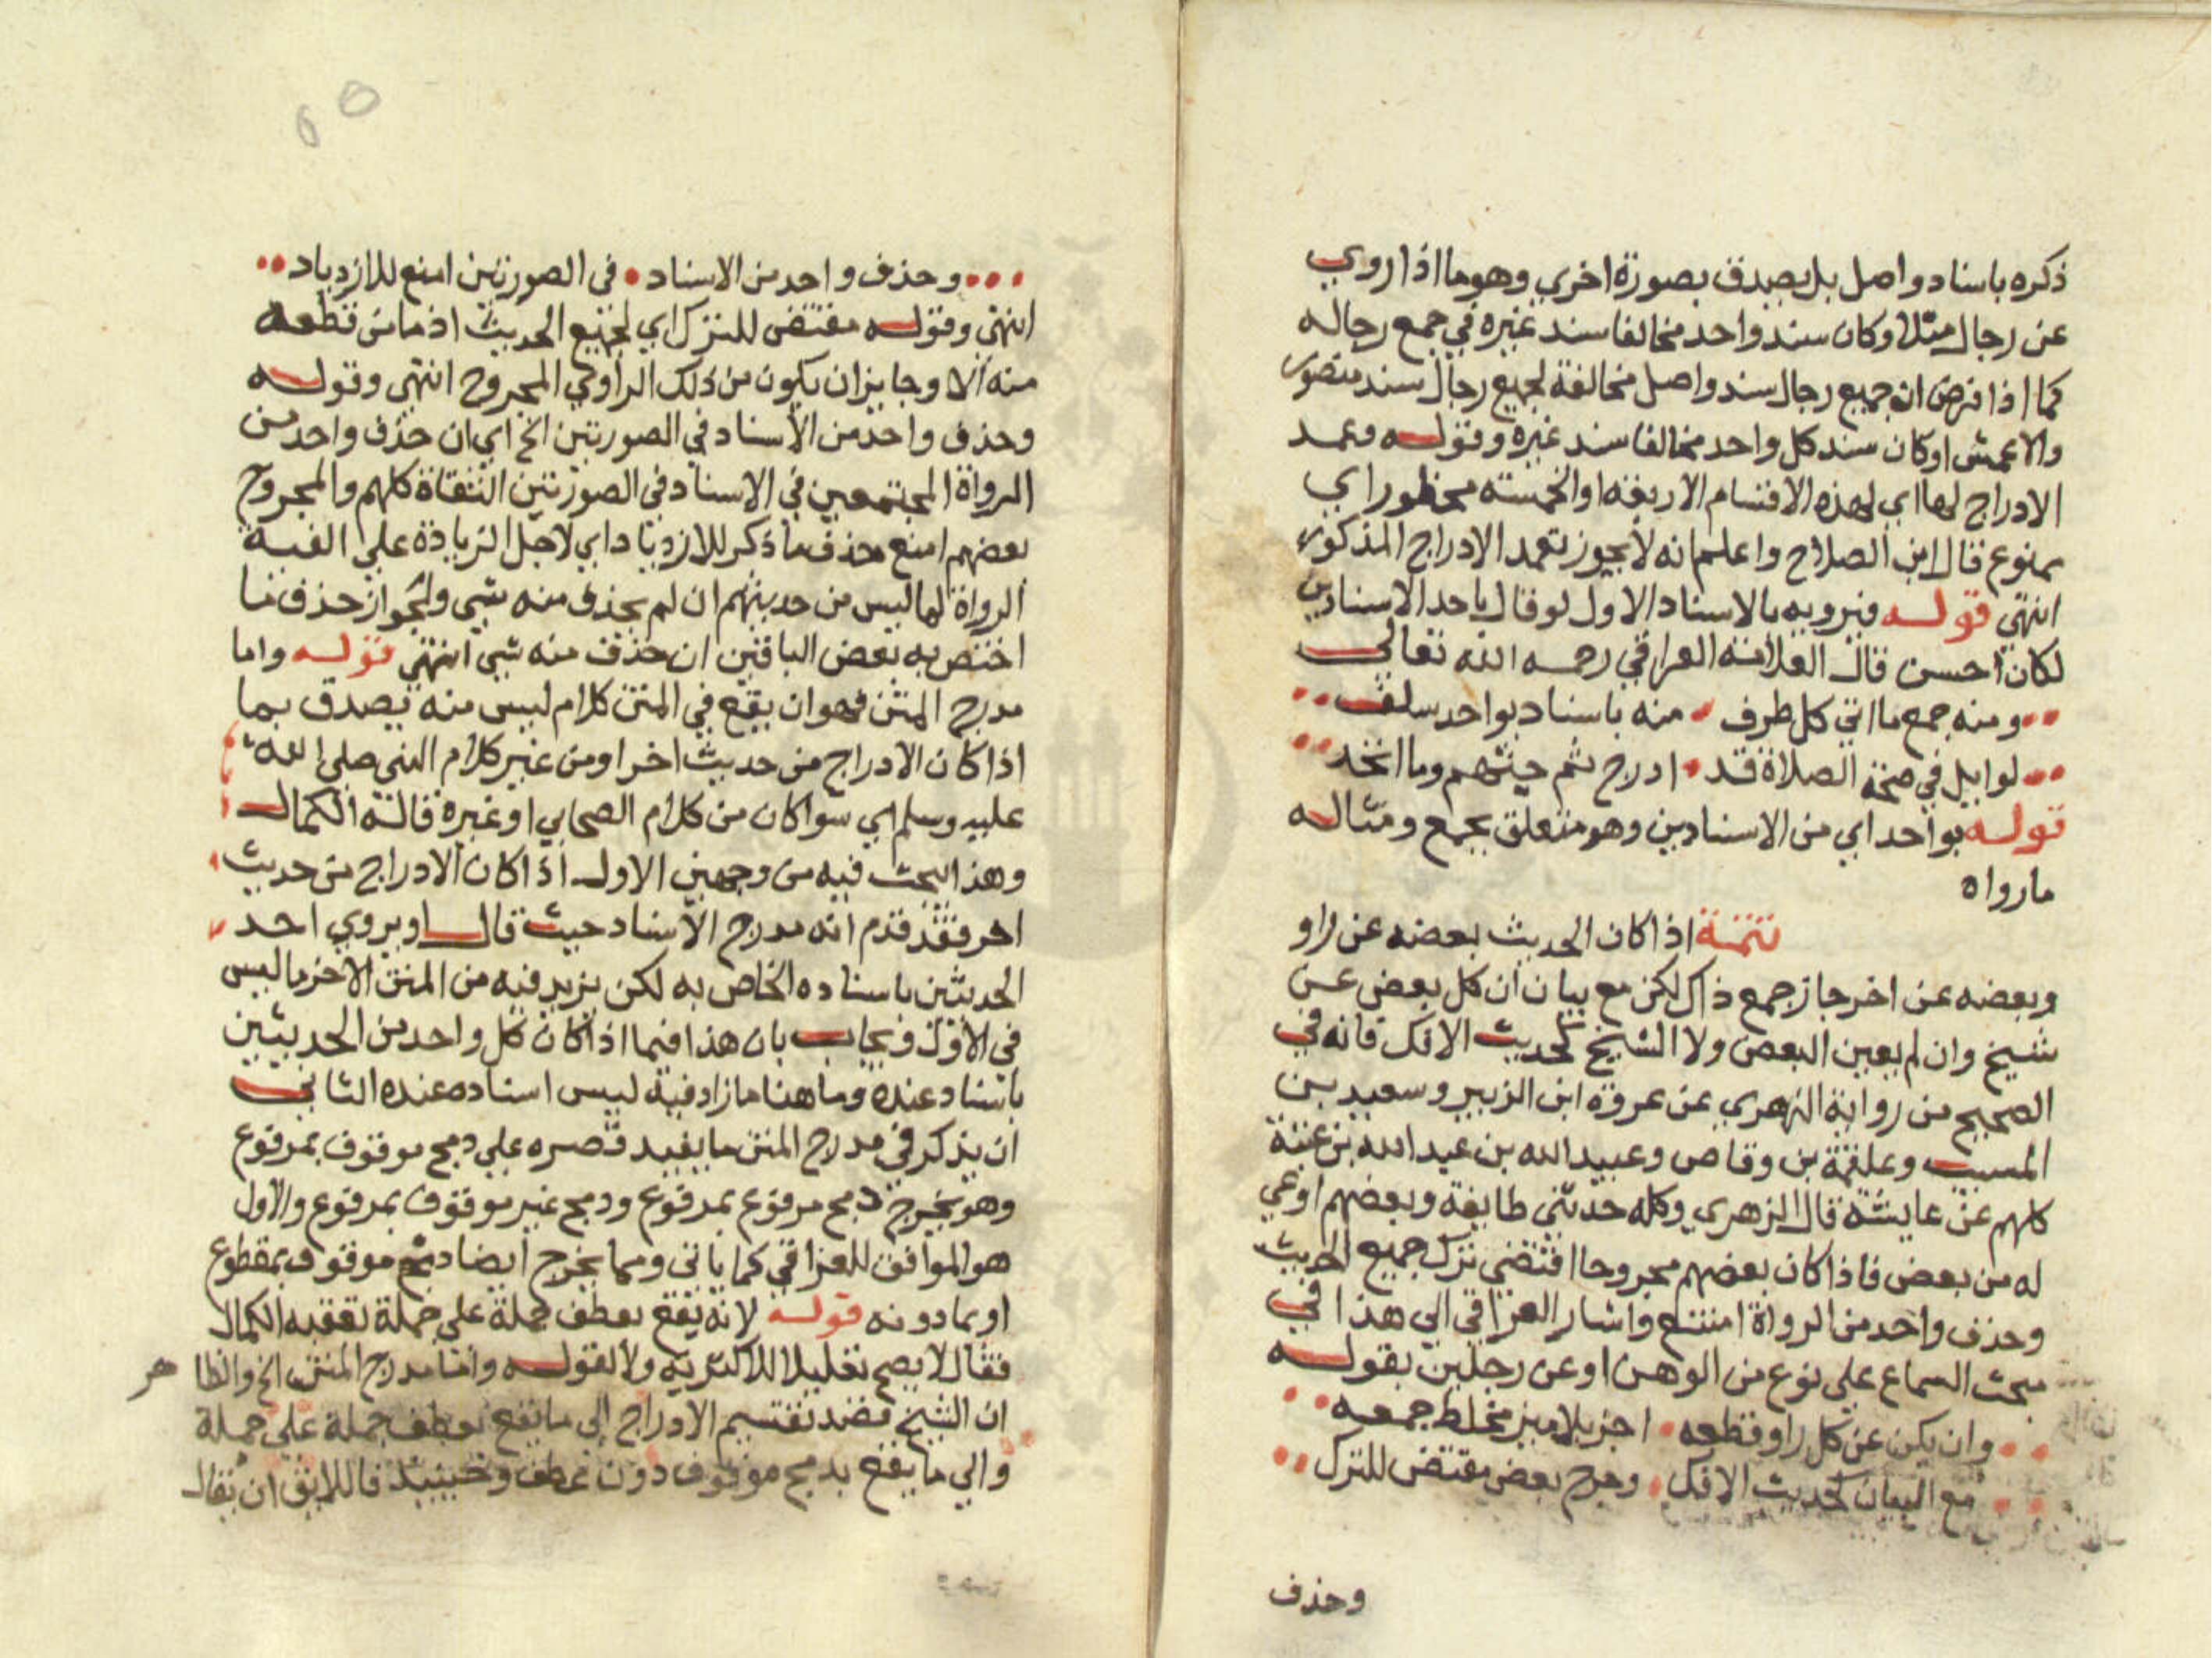 ذكره باسناد واصل بل يصدق بصورة اخري وهو ما اذا روي
عن رجال مثلا وكان سند واحد مخالفا سند غيره في جمع رجاله
كما اذا فرض ان جميع رجال سند واصل مخالفة لجميع رجال سند منصور
والاعمش او كان سند كل واحد مخالفا سند غيره وقوله وعمد
الادراج لها اي لهذه الاقسام الاربعة او الخمسة محظور اي
ممنوع قال ابن الصلاح واعلم انه لا يجوز تعمد الادراج المذكور
انتهي قوله فيرويه بالاسناد الاول لو قال باحد الاسنادين
لكان احسن قال العلامة العراقي رحمه الله تعالي
ومنه جمع ما اتي كل طرف منه باسناد بواحد سلف
لوايل في صفة الصلاة قد ادرج ثم جيتهم وما اتحد
قوله بواحد اي من الاسنادين وهو متعلق بجمع ومثاله
مارواه
تتمة اذا كان الحديث بعضه عن راو
وبعضه عن اخر جاز جمع ذاك لكن مع بيان ان كل بعض عن
شيخ وان لم يعين البعض ولا الشيخ كحديث الافك فانه في
الصحيح من رواية الزهري عن عروة ابن الزبير وسعيد بن
المسيب وعلقمة بن وقاص وعبيد الله بن عبد الله بن عتبة
كلهم عن عايشة قال الزهري وكله حدثني طايفة وبعضهم اوعي
له من بعض فاذا كان بعضهم مجروحا اقتضي ترك جميع الحديث
وحذف واحد من الرواة امتنع واشار العراقي الي هذا في
مبحث السماع علي نوع من الوهن او عن رجلين بقوله
وان يكن عن كل راو قطعه اجز بلا ميز مخلط جمعه
مع البيان كحديث الافك وجرح بعض مقتض للترك
وحذف
وحذف واحد من الاسناد في الصورتين امنع للازدياد
انتهي وقوله مقتض للترك اي لجميع الحديث اذ ما من قطعة
منه الا وجايز ان يكون من ذلك الراوي المجروح انتهي وقوله
وحذف واحد من الاسناد في الصورتين الخ اي ان حذف واحد من
الرواة المجتمعين في الاسناد في الصورتين الثقاة كلهم والمجروح
بعضهم امنع حذف ما ذكر للازدياد اي لاجل الزيادة علي القية
الرواة لما ليس من حديثهم ان لم يحذف منه شي ولجواز حذف ما
اختص به بعض الباقين ان حذف منه شي انتهي قوله واما
مدرج المتن فهو ان يقع في المتن كلام ليس منه يصدق بما
اذا كان الادراج من حديث اخر او من غير كلام النبي صلي الله
عليه وسلم اي سوا كان من كلام الصحابي او غيره قاله الكمال
وهذا البحث فيه من وجهين الاول اذا كان الادراج من حديث
اخر فقد قدم انه مدرج الاسناد حيث قال او يروي احد
الحديثين باسناده الخاص به لكن يزيد فيه من المتن الاخر ما ليس
في الاول ويجاب بان هذا فيما اذا كان كل واحد من الحديثين
باسناد عنده وما هنا ما زاد فيه ليس اسناده عنده الثاني
ان يذكر في مدرج المتن ما يفيد قصره علي دمج موقوف بمرفوع
وهو يخرج دمج مرفوع بمرفوع ودمج غير موقوف بمرفوع والاول
هو الموافق للعراقي كما ياتي ومما يخرج ايضا دمج موقوف بمقطوع
او بما دونه قوله لانه يقع بعطف جملة علي جملة تعقبه الكمال
فقال لا يصح تعليلا للاكثرية ولا لقوله واما مدرج المتن الخ والظاهر
ان الشيخ قصد تقسيم الادراج الي ما يقع بعطف جملة علي جملة
والي ما يقع بدمج موقوف دون عطف وحينيذ فاللايق ان يقال